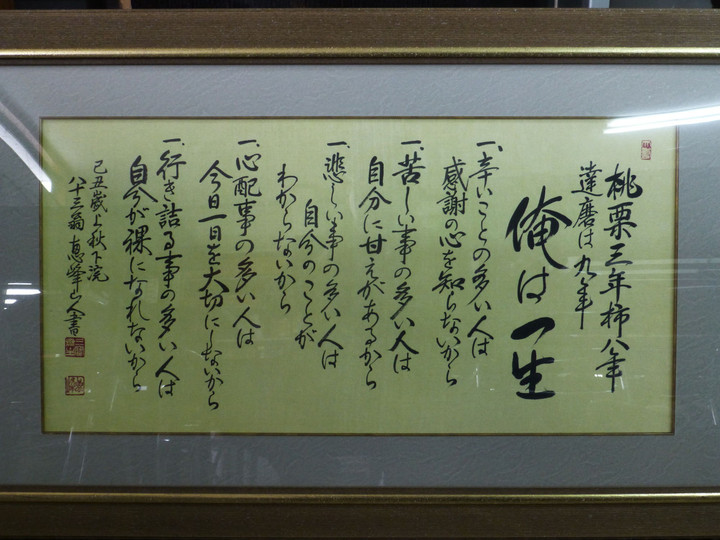 桃栗三年柿八年
達磨は九年
俺は一生
一、辛いことの多い人は
感謝の心を知らないから
一、苦しい事の多い人は
自分に甘えがあるから
一、悲しい事の多い人は
自分のことが
わからないから
一、心配事の多い人は
今日一日を大切にしないから
一、行き詰る事の多い人は
自分が裸になれないから
己丑歳上秋下浣
八十三翁 恵峰山人書